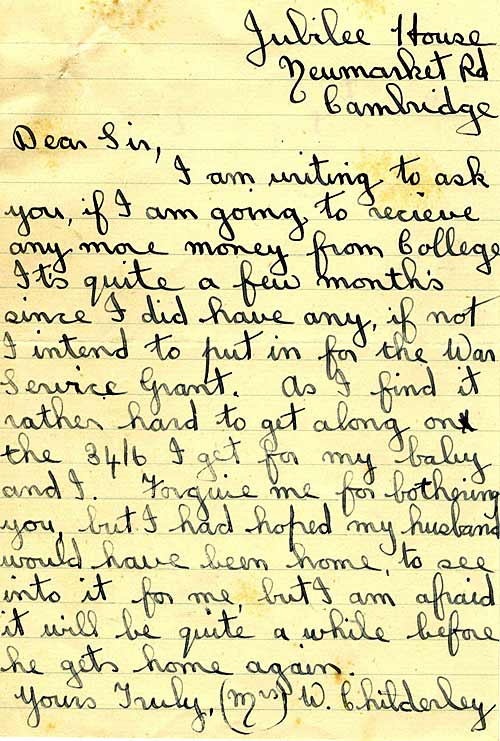 Jubilee House
Neumarket Rd
Cambridge
Dear Sir,
I am writing to ask
you, if I am going to recieve
any more money from College
It's quite a few month's
since I did have any, if not
I intend to put in for the War
Service Grant. As I find it
rather hard to get along on
the 34/6 I get for my baby
and I. Forgive me for bothering
you, but I had hoped my husband
would have been home, to see
into it for me, but I am afraid
it will be quite a while before
he gets home again.
Yours Truly, (Mrs) W. Childerley